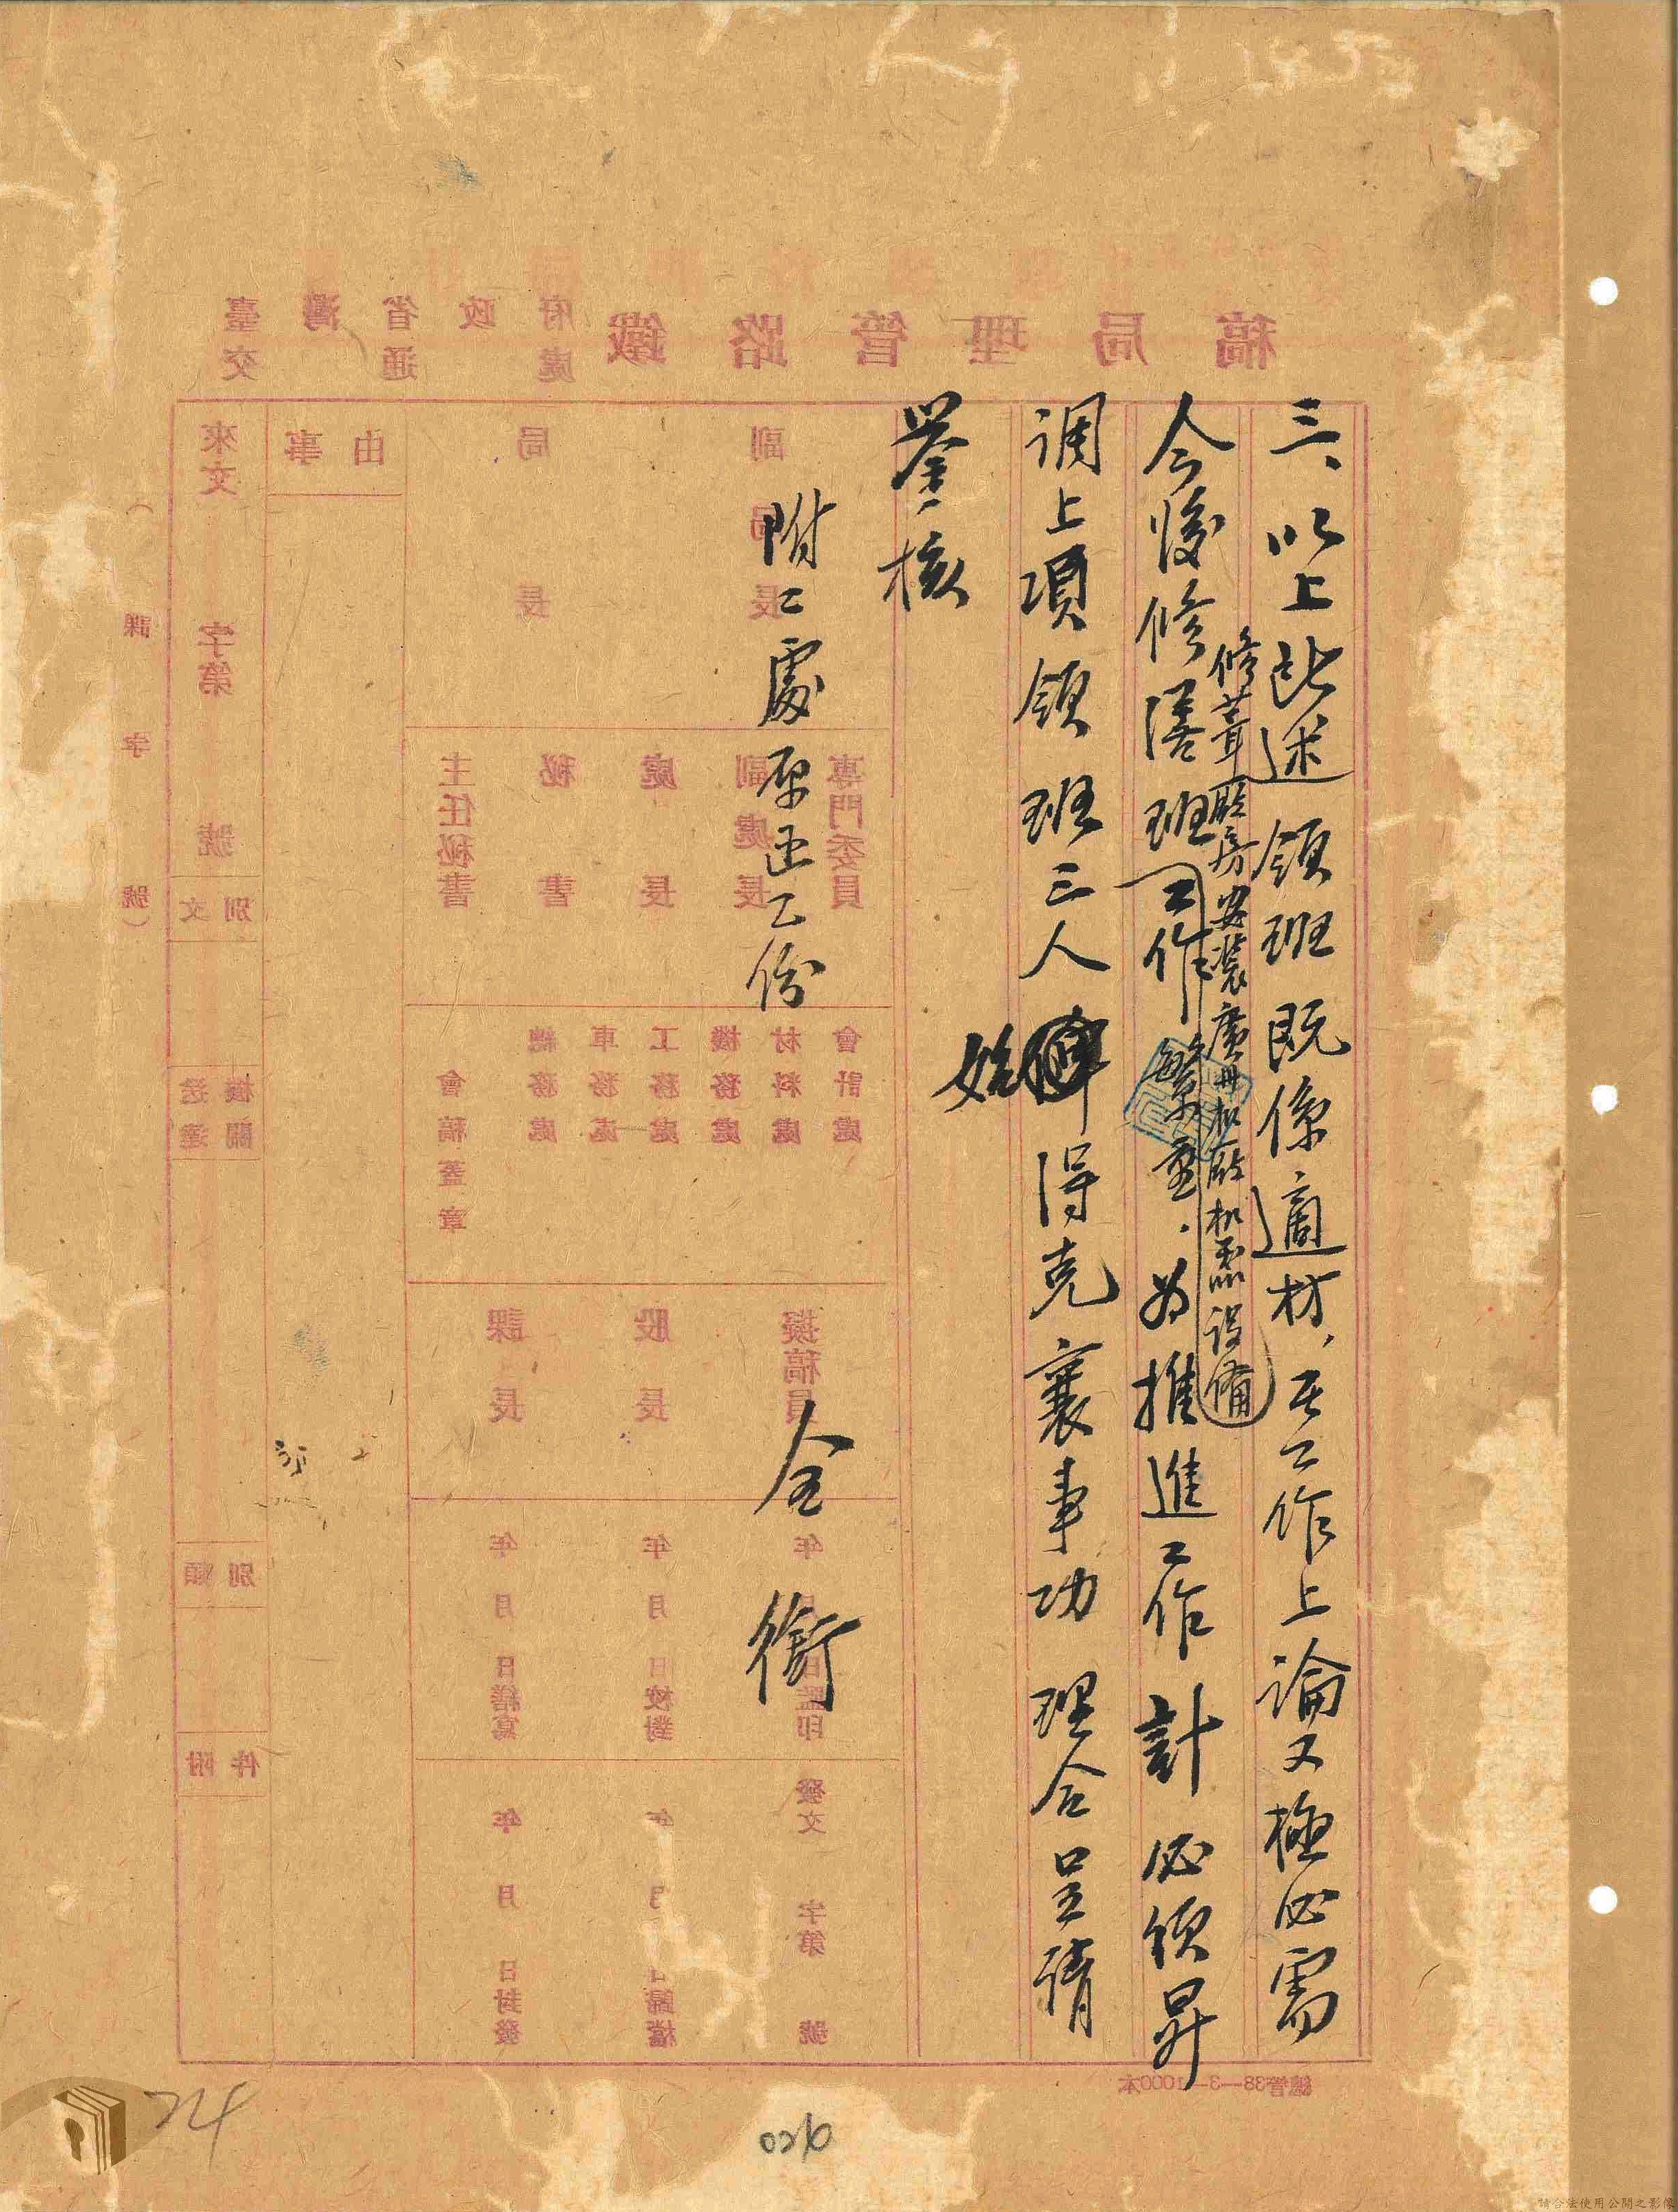 三、以上所述領班既係適材,在工作上論又極必需
修葺監房安裝廣冊机廠机器設備
今後修繕班工作繁重.為推進工作計必須昇
調上項領班三人始得克襄事功理合呈請
鑒核
附工處原函乙份
全銜
稿局理管路鐵
臺灣省政府
交通處
來文 字第 號
事由
局長
副局長
主任秘書
秘書
處長
副處長
專門委員
會稿蓋章
總務處
車務處
工務處
機務處
材料處
會計處
課長
股長
擬稿員
年月日繕寫
年月日校對
年月日監印
年月日封發
發文字第號
文別
送達機關
類別
附件
(課字號)
總管38—3—1000本
024
74
請合法使用公開之影像